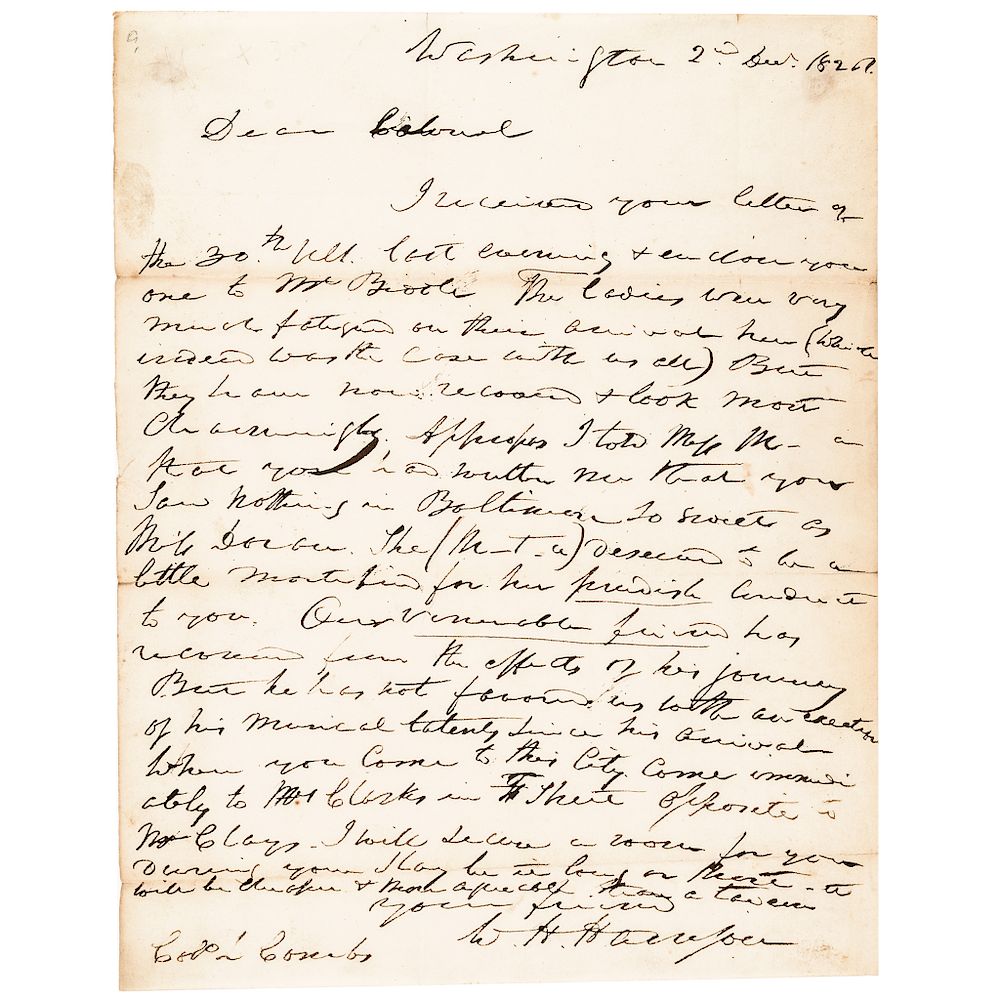 Washington 2nd Decr. 1826.
Dear Colonel
I received your letter of
the 30.th Ult. last evening & enclose you
one to Mr Biddle The Ladies were very
much fatigued on their arrival here (which
indeed was the case with us all) But
they have now recovered & look most
Charmingly. Appropos I told Miss M–
that you had written me that you
Saw nothing in Baltimore so sweet as
Miss The (M–T–a) deserved to be a
little mortified for her prudish Conduct
to you. Our venerable friend has
recovered from the effects of his journey
But he has not favored us with an exertion
of his Musical talents since his arrival
When you Come to this City Come immedi
ately to Mrs Clarks in F Street opposite to
Mr Clays. I will secure a room for you
During your Stay be it long or short – it
will be cheaper & more agreeable than a tavern
your friend
W. H. Harrison
Col. Combs